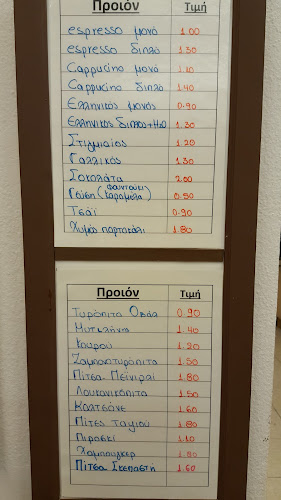 Προιόν Τιμή
espresso μονό 1.00
espresso διπλό 1.30
Cappucino μονό 1.10
Cappucino διπλό 1.40
Ελληνικός μονός 0.90
Ελληνικός διπλός+Η2Ο 1.30
Στιγμιαίος 1.20
Γαλλικός 1.30
Σοκολάτα 2.00
Γεύση (φουντούκι καραμέλα) 0.50
Τσάϊ 0.90
Χυμός πορτοκάλι 1.80
Προιόν Τιμή
Τυρόπιτα Οβάλ 0.90
Μυτιλήνη 1.40
Κουρού 1.20
Ζαμπονοτυρόπιτα 1.50
Πίτσα Πεϊνιρλί 1.80
Λουκανικόπιτα 1.50
Καλτσόνε 1.60
Πίτες Ταψιού 1.80
Πιροσκί 1.10
Χάμπουγκερ 1.80
Πίτσα Σκεπαστή 1.60